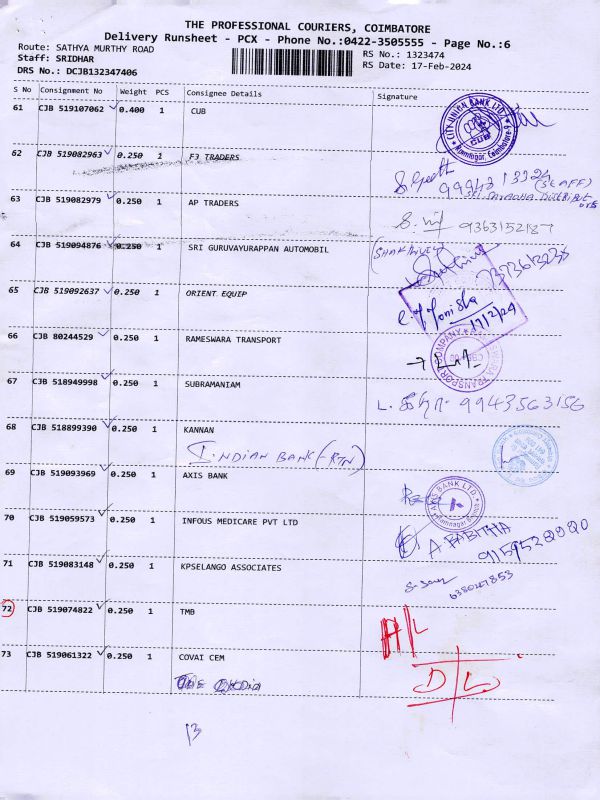 THE PROFESSIONAL COURIERS, COIMBATORE
Delivery Runsheet - PCX - Phone No.:0422-3505555 - Page No.:6
Route: SATHYA MURTHY ROAD
RS No.: 1323474
Staff: SRIDHAR
RS Date: 17-Feb-2024
DRS No.: DCJB132347406
S No Consignment No Weight PCS Consignee Details Signature
61 CJB 519107062 0.400 1 CUB
CITY UNION BANK LTD.
CUB
Ramnagar, Coimbatore-9
62 CJB 519082963 0.250 1 F3 TRADERS
(STAFF)
63 CJB 519082979 0.250 1 AP TRADERS
9363152187
64 CJB 519094876 0.250 1 SRI GURUVAYURAPPAN AUTOMOBIL
65 CJB 519092637 0.250 1 ORIENT EQUIP
17/2/24
66 CJB 80244529 0.250 1 RAMESWARA TRANSPORT
67 CJB 518949998 0.250 1 SUBRAMANIAM
9943563156
68 CJB 518899390 0.250 1 KANNAN
INDIAN BANK (RTN)
69 CJB 519093969 0.250 1 AXIS BANK
AXIS BANK LTD.
70 CJB 519059573 0.250 1 INFOUS MEDICARE PVT LTD
A. HABITHA
9159528990
71 CJB 519083148 0.250 1 KPSELANGO ASSOCIATES
72 CJB 519074822 0.250 1 TMB
H/L
73 CJB 519061322 0.250 1 COVAI CEM
D/L
13